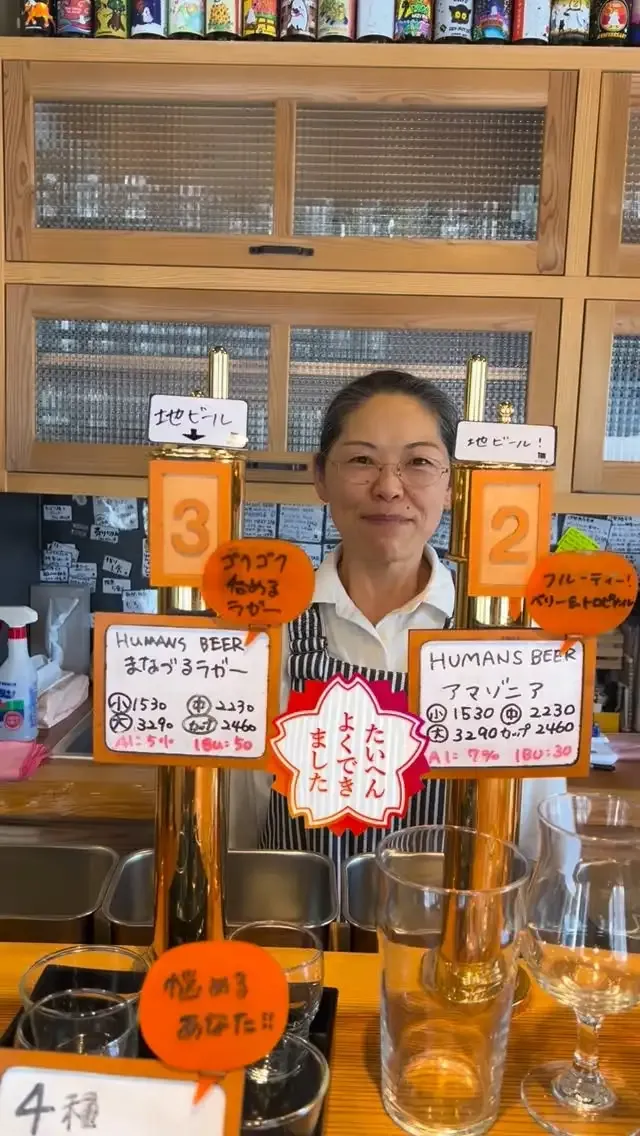 地ビール
↓
3
ゴクゴク
飲める
ラガー
HUMANS BEER
まなづるラガー
小 1530 中 2230
大 3290 カップ 2460
Al: 5% IBU: 50
地ビール!
2
フルーティー!
ベリー&トロピカル
HUMANS BEER
アマゾニア
小 1530 中 2230
大 3290 カップ 2460
Al: 7% IBU: 30
たいへん
よくでき
ました
悩める
あなた!!
4種